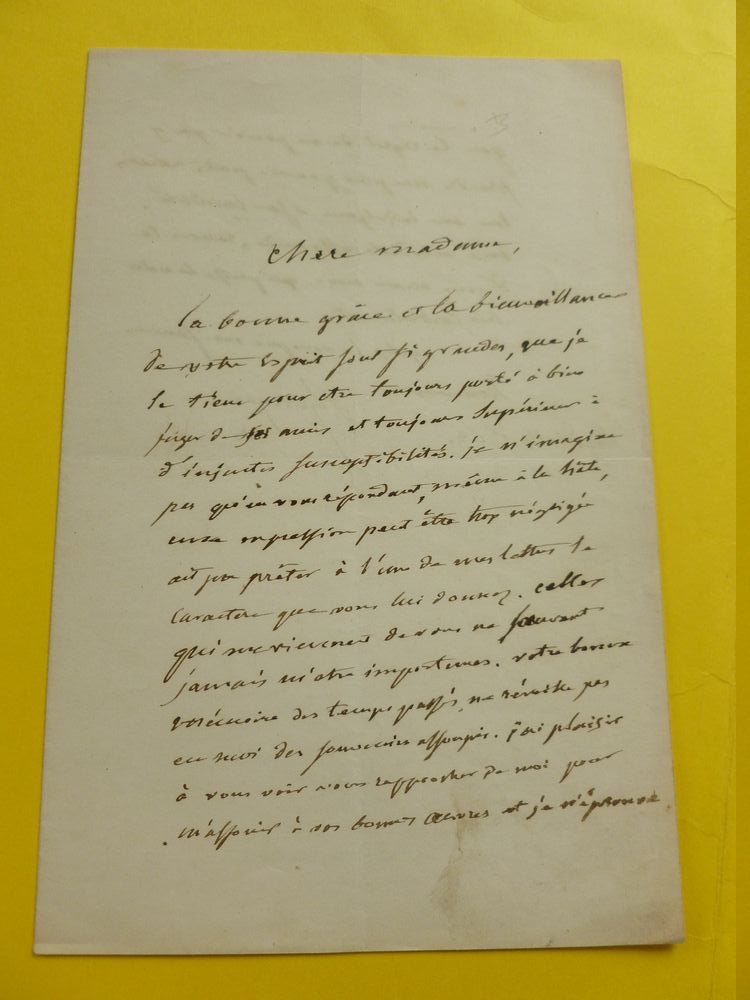 chere madame,
la bonne grâce et la bienveillance
de votre Esprit sont si grandes, que je
le tiens pour etre toujours porté à bien
juger de ses amis et toujours supérieur à
d'injustes susceptibilités. je n'imagine
pas qu'en vous répondant, même à la hâte,
une expression peut être trop négligée
ait pu prêter à l'une de mes lettres le
caractere que vous lui donnez. celles
qui me viennent de vous ne sauraient
jamais m'etre importunes. votre bonne
mémoire des temps passés, ne réveille pas
en moi des souvenirs assoupis. j'ai plaisir
à vous voir vous rapprocher de moi pour
m'associer à vos bonnes œuvres et je n'éprouve